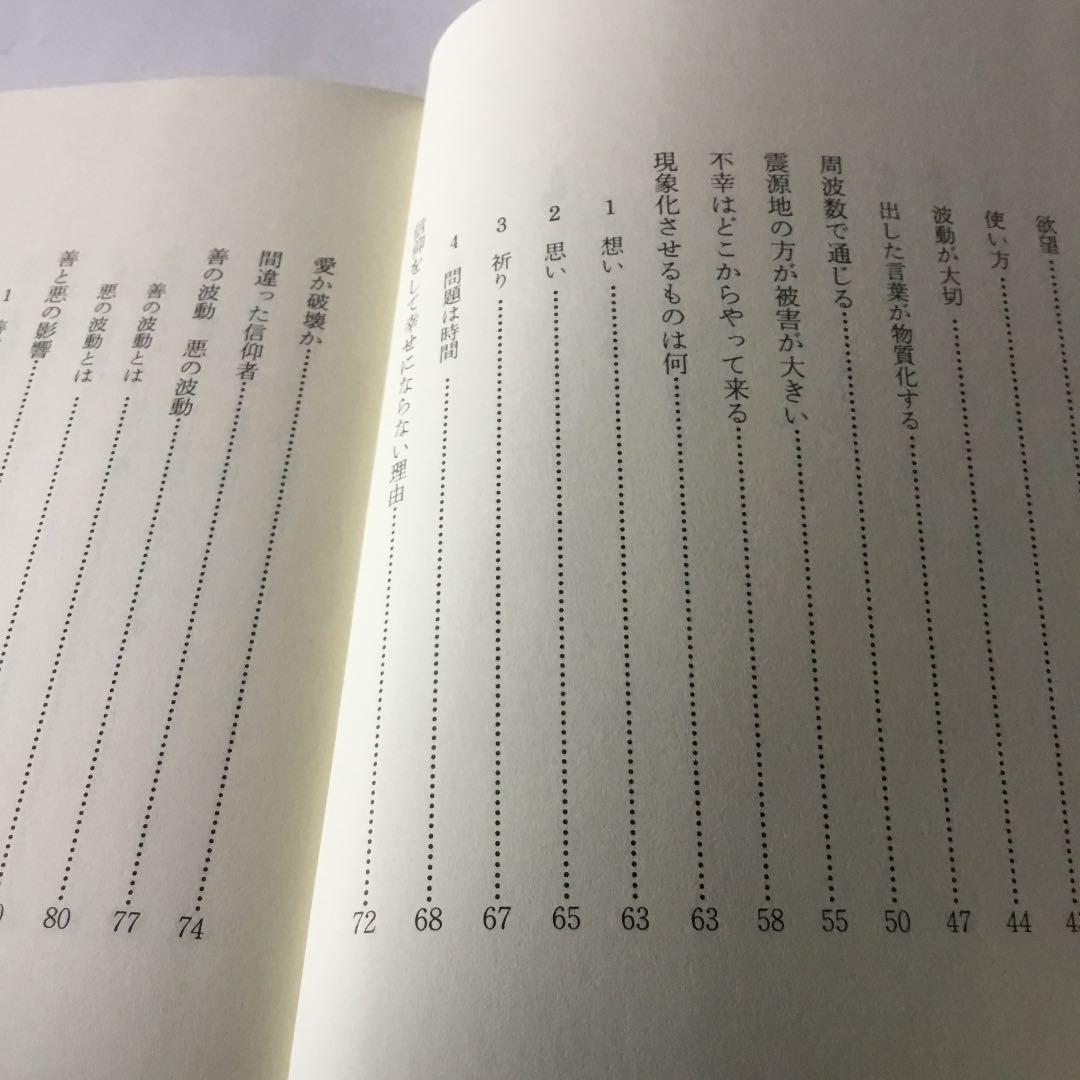 欲望
使い方
波動が大切 44
出した言葉が物質化する 47
周波数で通じる 50
震源地の方が被害が大きい 55
不幸はどこからやって来る 58
現象化させるものは何 63
1 想い 63
2 思い 65
3 祈り 67
4 問題は時間 68
信仰をして幸せにならない理由 72
愛か破壊か
間違った信仰者 74
善の波動 悪の波動 77
善の波動とは 80
悪の波動とは
善と悪の影響
1